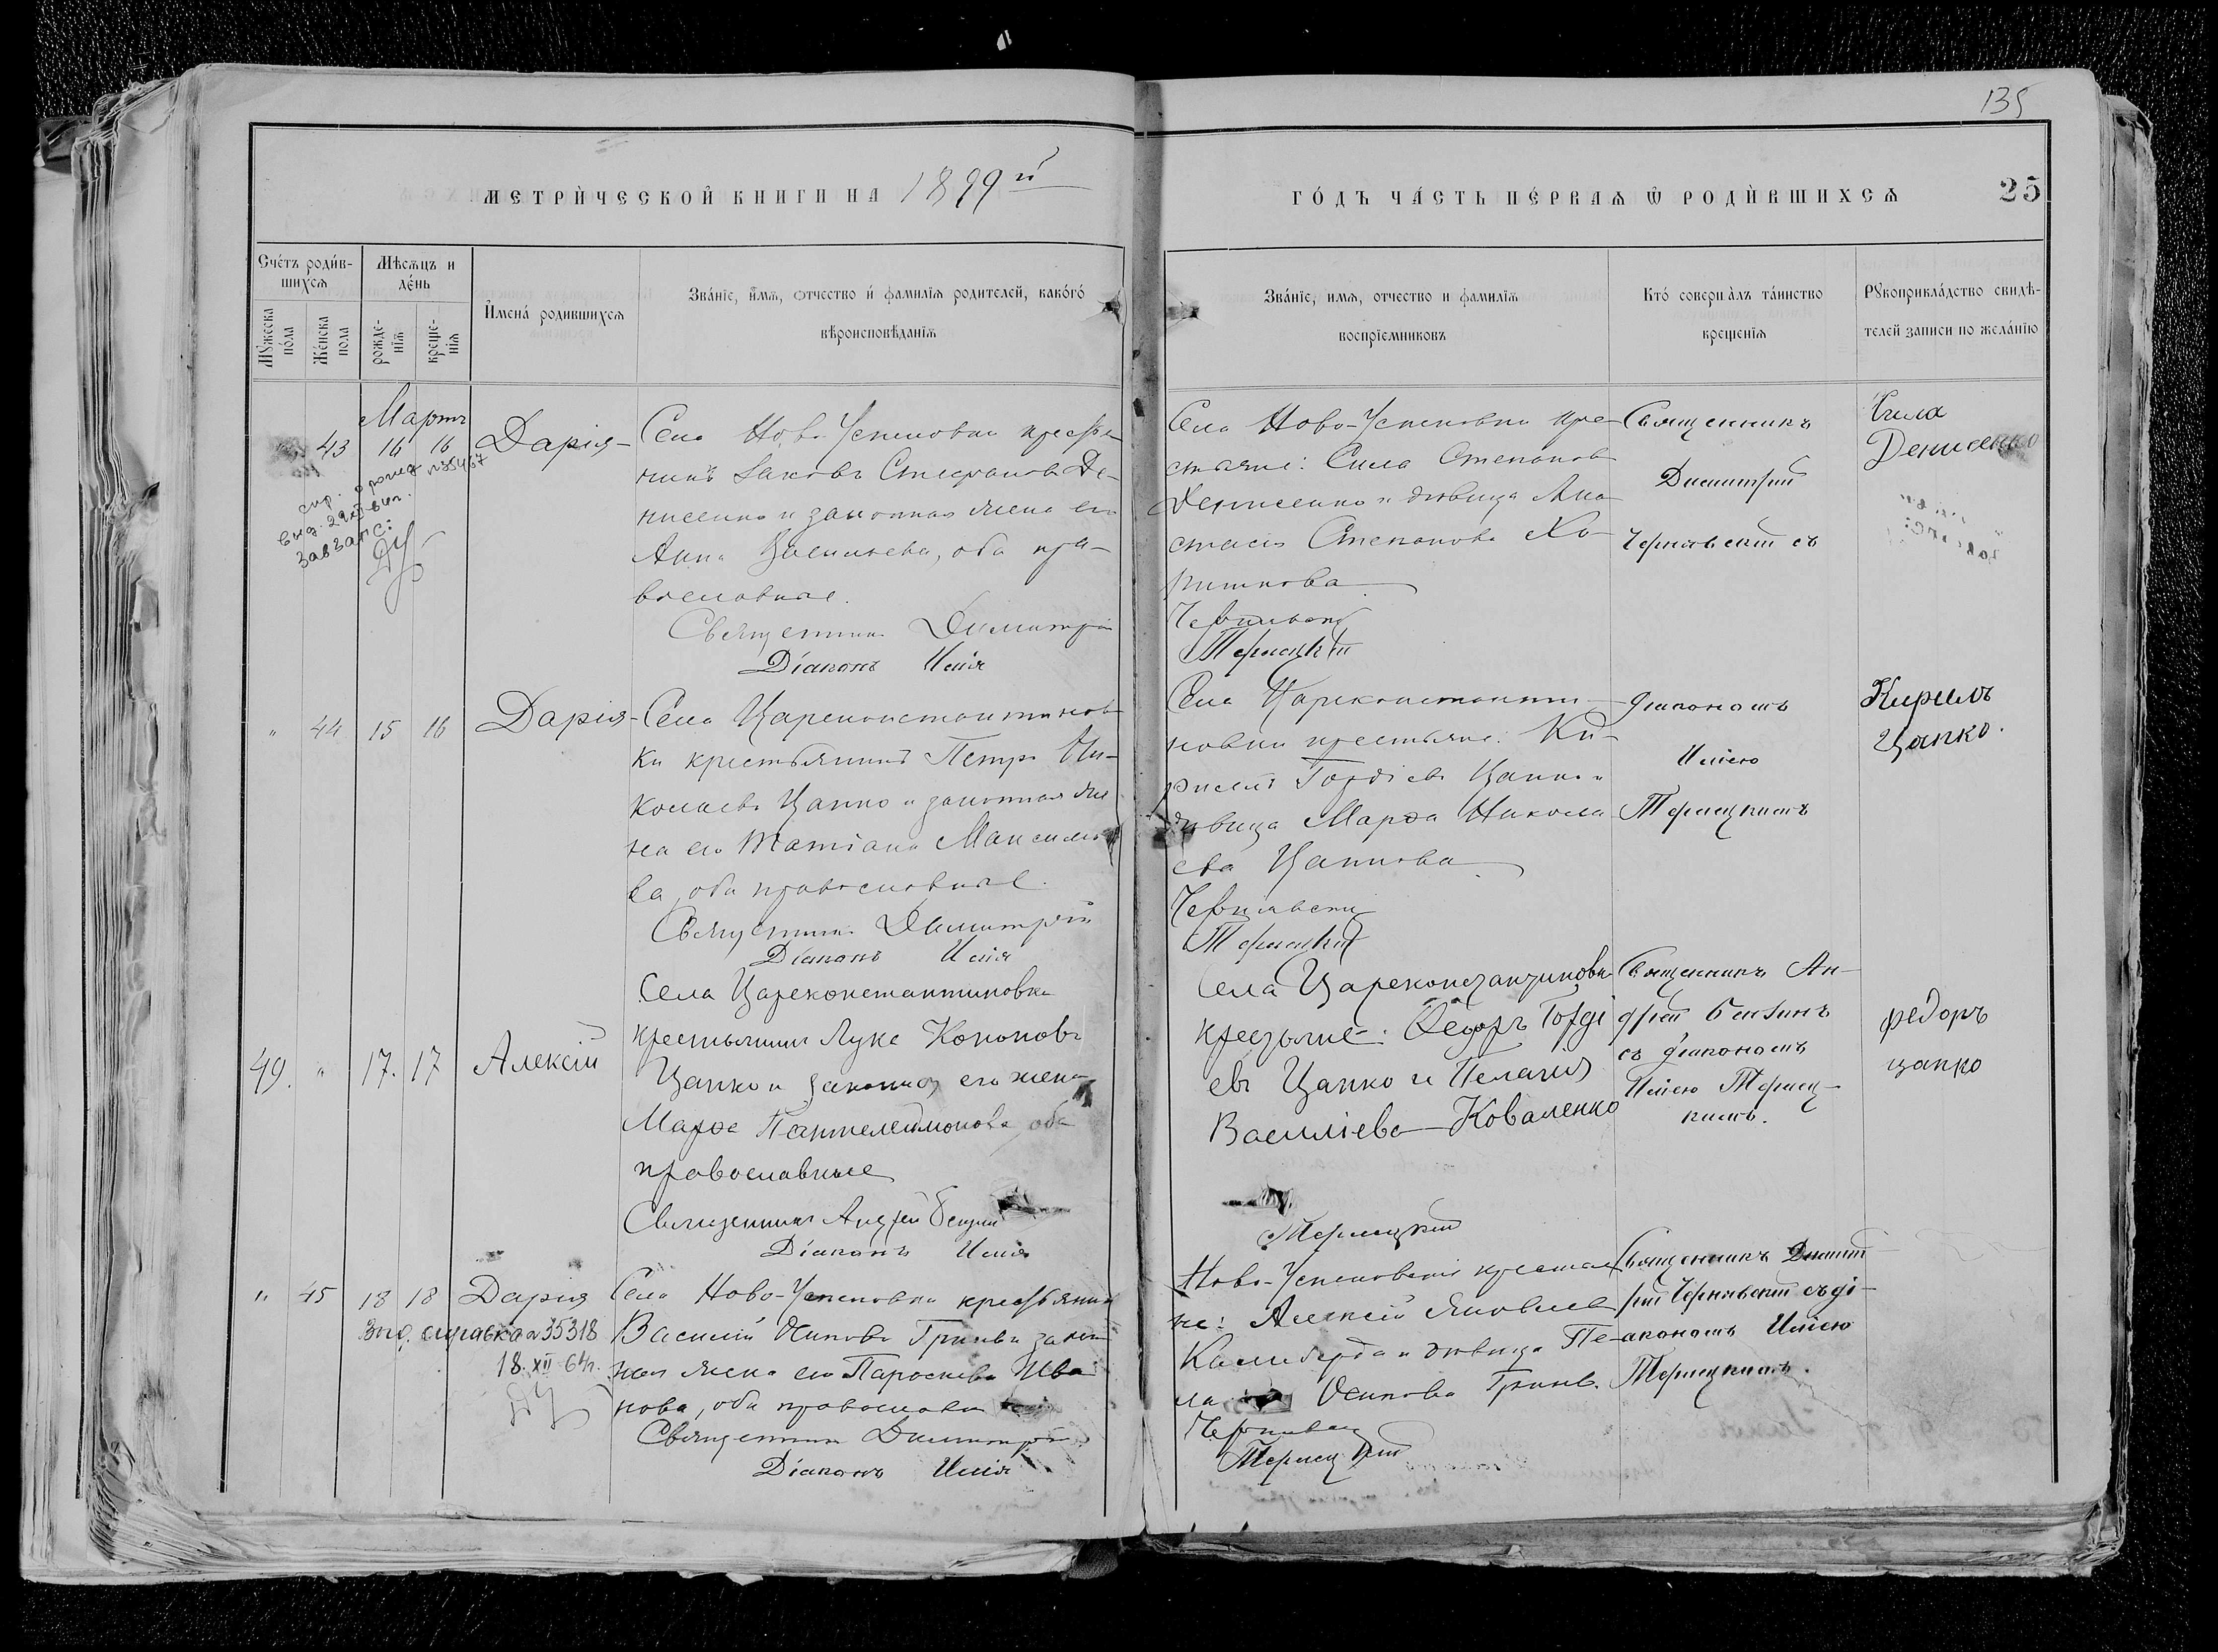 135
МЕТРИ́ЧЕСКОЙ КНИГИ НА 1899й
ГО́ДЪ ЧА́СТЬ ПЕ́РВАѦ Ѿ РОДИ́ВШИХСѦ 25
Сче́тъ роди́в-
шихсѧ
Мѣсѧцъ и
де́нь
Мꙋжеска
по́ла
Же́нска
пола
рожде-
нїѧ
креще-
нїѧ
И҆мена́ родившихсѧ
Зва́нїе, и҆мѧ, отчество и҆ фамилїѧ родителей, како́гѡ́
вѣроисповѣданїѧ
Зва́нїе, имѧ, отчество и фамилїѧ
воспрїемниковъ
Кто́ соверша̀лъ та́инство
крещенїѧ
Рꙋкоприкла́дство свидѣ-
телей записи по жела́нїю
Мартъ
43 16 16 Дарія
спр. о рожд N35467
выд. 29 XII 64г.
Зав ЗАГС:
Села Ново-Успеновки кресть-
нинъ Іаковъ Стефановъ Де-
нисенко и законная жена его
Анна Васильева, оба пра-
вославные.
Священникъ Димитрій
Діаконъ Илія
Села Ново-Успеновки кре-
стьяне: Сила Степановъ
Денисенко и дѣвица Ана
стасія Степанова Ха-
риткова
Чернявскій
Термецкій
Священникъ
Димитрій
Чернявскій съ
Сила
Денисенко
" 44 15 16 Дарія
Села Цареконстантинов-
ки крестьянинъ Петръ Ни-
колаевъ Цапко и законная же
на его Татіана Максимо
ва, оба православные.
Священникъ Димитрій
Діаконъ Илія
Села Цареконстанти-
новки крестьяне: Ки-
риллъ Гордіевъ Цапко и
дѣвица Марѳа Никола
ева Цапкова
Чернявскій
Термецкій
діакономъ
Иліею
Термецкимъ
Кирилъ
Цапко.
49. " 17. 17 Алексій
Села Цареконстантиновки
крестьянинъ Лука Кононовъ
Цапко и законная его жена
Марѳа Пантелеимонова оба
православные
Священникъ Андрей
Діаконъ Илія
Села Цареконстантиновки
крестьяне: Ѳедоръ Горді
евъ Цапко и Пелагія
Василіева Коваленко
Термецкій
Священникъ Ан-
дрей
съ діакономъ
Иліею Термец-
кимъ.
федоръ
цапко
" 45 18 18 Дарія
Выд. справка N 35318
18.XII-64г.
Села Ново-Успеновки крестьянинъ
Василій Осиповъ Гринь и закон
ная жена его Параскева Ива
нова, оба православн
Священникъ Димитрій
Діаконъ Илія
Ново-Успеновскіе крестья
не: Алексій Яковлев
Калиберда и дѣвица Пе-
ла Осипова Гринь.
Чернявскій
Термецкій
Священникъ Димит
рій Чернявскій съ ді-
акономъ Иліею
Термецкимъ.